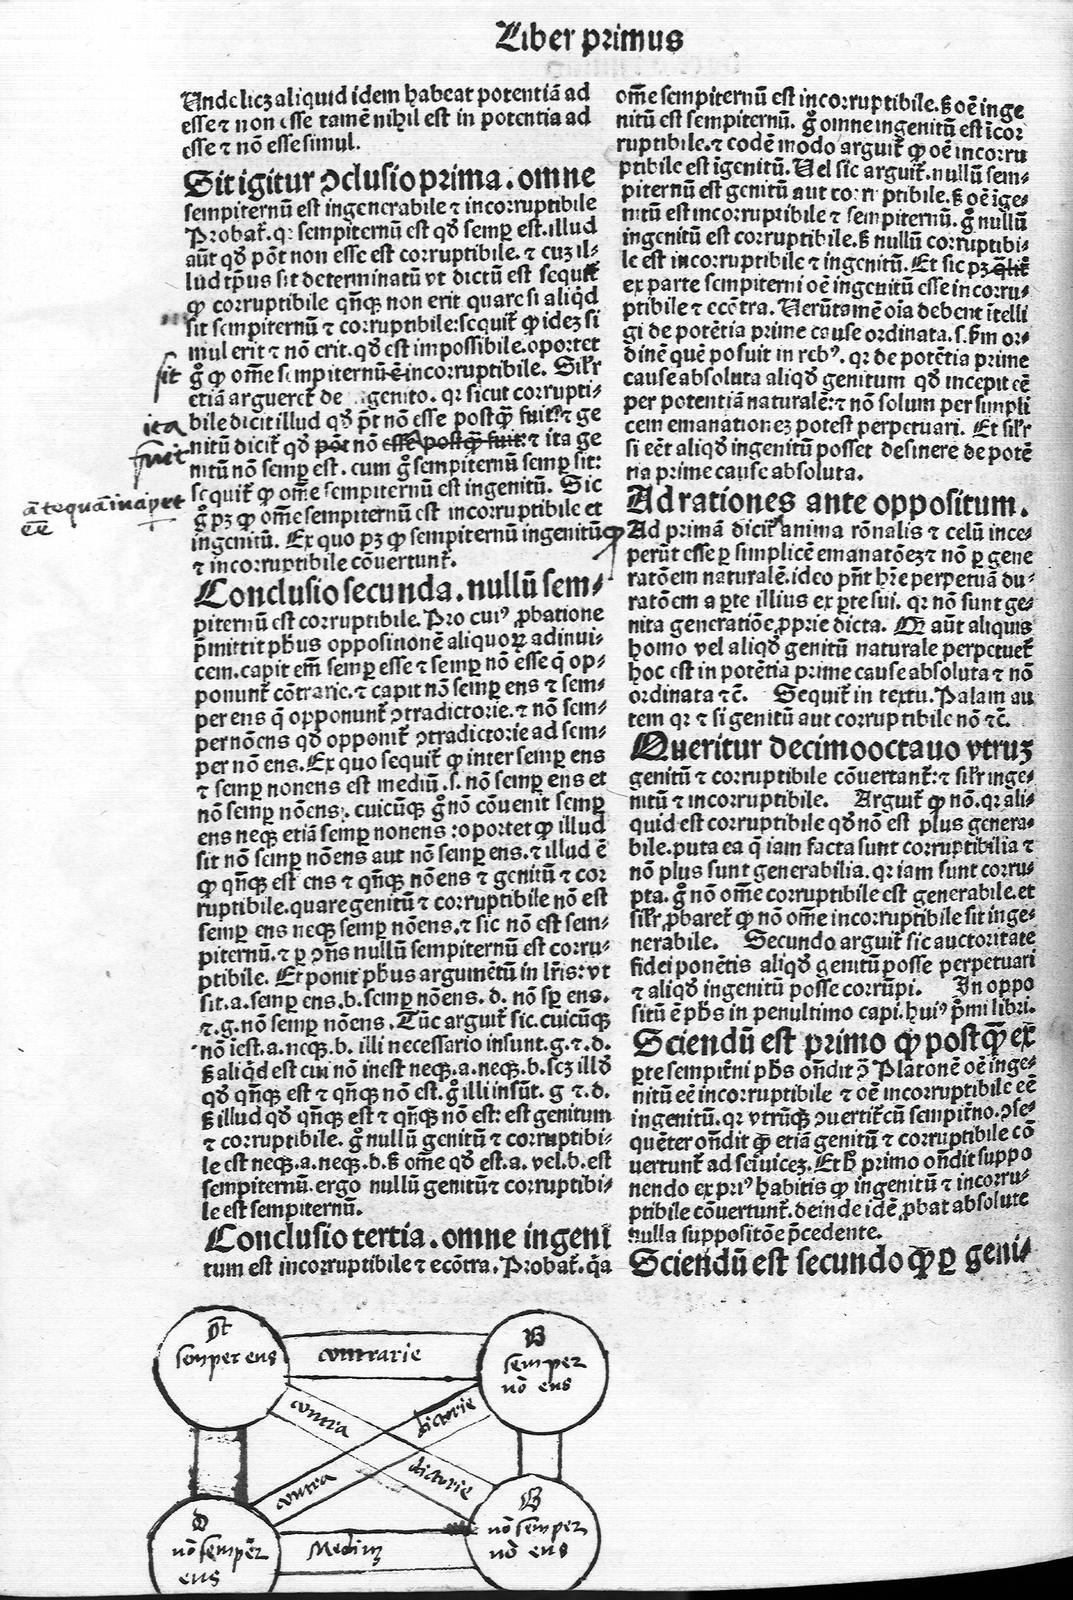 Liber primus
Unde licꝫ aliquid idem habeat potentiā ad
esse ⁊ non esse tamē nihil est in potentia ad
esse ⁊ nō esse simul.
Sit igitur ꝯclusio prima. omne
sempiternū est ingenerabile ⁊ incorruptibile
Probat̄. qꝛ sempiternū est qđ semꝑ est. illud
aūt qđ pōt non esse est corruptibile. ⁊ cuꝫ il⸗
lud tp̄us sit determinatū vt dictū est sequit̄
ꝙ corruptibile qn̄qꝫ non erit quare si aliqđ
sit sempiternū ⁊ corruptibile: sequit̄ ꝙ ideꝫ si
mul erit ⁊ nō erit. qđ est impossibile. oportet
sit
g̊ ꝙ om̄e sempiternū ē incorruptibile. Silr̄
etiā argueret̄ de genito. qꝛ sicut corrupti⸗
bile dicit illud qđ pōt nō esse postq̄ꝫ fuit: ⁊ ge
ita
nitū dicit̄ qđ pōt nō esse postq̄ꝫ fuit: ⁊ ita ge
fuit
nitū nō semꝑ est. cum g̊ sempiternū semꝑ sit:
ātequā incipet
ēē
sequit̄ ꝙ om̄e sempiternū est ingenitū. Sic
g̊ pꝫ ꝙ om̄e sempiternū est incorruptibile et
ingenitū. Ex quo pꝫ ꝙ sempiternū ingenitū ꝙ
⁊ incorruptibile cōvertunt̄.
Conclusio secunda. nullū sem⸗
piternū est corruptibile. Pro cuiꝰ ꝓbatione
p̄mittit ph̄us oppositionē aliquoꝝ adinui⸗
cem. capit em̄ semꝑ esse ⁊ semꝑ nō esse q̄ op⸗
ponunt̄ cōtrarie. ⁊ capit nō semꝑ ens ⁊ sem⸗
per ens q̄ opponunt̄ ꝯtradictorie. ⁊ nō sem⸗
per nō ens qđ opponit̄ ꝯtradictorie ad sem⸗
per nō ens. Ex quo sequit̄ ꝙ inter semꝑ ens
⁊ semꝑ non ens est mediū .s. nō semꝑ ens et
nō semꝑ nō ens: cuicūqꝫ g̊ nō cōuenit semꝑ
ens neqꝫ etiā semꝑ non ens: oportet ꝙ illud
sit nō semꝑ nō ens aut nō semꝑ ens. ⁊ illud ē
ꝙ qn̄qꝫ est ens ⁊ qn̄qꝫ nō ens ⁊ genitū ⁊ cor
ruptibile. quare genitū ⁊ corruptibile nō est
semꝑ ens neqꝫ semꝑ nō ens. ⁊ sic nō est sem⸗
piternū. ⁊ ꝑ ꝯn̄s nullū sempiternū est corru⸗
ptibile. Et ponit ph̄us argumētū in lr̄is: vt
sit .a. semꝑ ens .b. semꝑ nō ens. d. nō sꝑ ens.
⁊ .g. nō semꝑ nō ens. Tūc arguit̄ sic. cuicūqꝫ
nō iest .a. neqꝫ .b. illi necessario insunt .g. ⁊ .d.
sꝫ aliqđ est cui nō inest neqꝫ .a. neqꝫ .b. scꝫ illđ
qđ qn̄qꝫ est ⁊ qn̄qꝫ nō est. g̊ illi insūt .g ⁊ .d.
sꝫ illud qđ qn̄qꝫ est ⁊ qn̄qꝫ nō est: est genitum
⁊ corruptibile. g̊ nullū genitū ⁊ corruptibi⸗
le est neqꝫ .a. neqꝫ .b. sꝫ om̄e qđ est .a. vel .b. est
sempiternū. ergo nullū genitū ⁊ corruptibi⸗
le est sempiternū.
Conclusio tertia. omne ingeni
tum est incorruptibile ⁊ ecōtra. Probat̄. q̄a
om̄e sempiternū est incorruptibile. sꝫ oē inge
nitū est sempiternū. g̊ omne ingenitū est īcor
ruptibile. ⁊ codē modo arguit̄ ꝙ oē incorru
ptibile est īgenitū. Uel sic arguit̄. nullū sem⸗
piternū est genitū aut corruptibile. sꝫ oē ige⸗
nitū est incorruptibile ⁊ sempiternū. g̊ nullū
ingenitū est corruptibile. sꝫ nullū corruptibi⸗
le est incorruptibile ⁊ ingenitū. Et sic pꝫ qlit̄
ex parte sempiterni oē ingenitū esse incorru⸗
ptibile ⁊ ecōtra. Uerūtamē oīa debent itelli
gi de potētia prime cause ordinata .s. scd̄m or⸗
dinē quē posuit in rebꝰ. qꝛ de potētia prime
cause absoluta aliqđ genitum qđ incepit eē
per potentiā naturalē: ⁊ nō solum per simpli
cem emanationeꝫ potest perpetuari. Et silr̄
si eēt aliqđ ingenitū posset desinere de potē
tia prime cause absoluta.
Ad rationes ante oppositum.
Ad primā dicit̄ anima rōnalis ⁊ celū ince⸗
perūt esse ꝑ simplicē emanatōeꝫ ⁊ nō ꝑ gene
ratōem naturalē. ideo pn̄t hr̄e perpetuā du⸗
ratōem a ꝑte illius ex ꝑte sui. qꝛ nō sunt ge⸗
nita generatiōe ꝓprie dicta. Qꝛ aūt aliquis
homo vel aliqđ genitū naturale perpetuet̄
hoc est in potētia prime cause absoluta ⁊ nō
ordinata ⁊c̄. Sequit̄ in textu. Palam au
tem qꝛ ⁊ si genitū aut corruptibile nō ⁊c̄.
Queritur decimooctauo vtruꝫ
genitū ⁊ corruptibile cōuertant̄: ⁊ silr̄ inge⸗
nitū ⁊ incorruptibile. Arguit̄ ꝙ nō. qꝛ ali⸗
quid est corruptibile qđ nō est plus genera⸗
bile. puta ea q̄ iam facta sunt corruptibilia ⁊
nō plus sunt generabilia. qꝛ iam sunt corru⸗
pta. g̊ nō om̄e corruptibile est generabile. et
silr̄ ꝓbaret̄ ꝙ nō om̄e incorruptibile sit inge⸗
nerabile. Secundo arguit̄ sic auctoritate
fidei ponētis aliqđ genitū posse perpetuari
⁊ aliqđ ingenitū posse corrūpi. In oppo
sitū ē ph̄s in penultimo capi. huiꝰ p̄mi libri.
Sciendū est primo ꝙ postq̄ꝫ ex
ꝑte sempit̄ni ph̄s on̄dit ꝯ̄ Platonē oē inge⸗
nitū eē incorruptibile ⁊ oē incorruptibile eē
ingenitū. qꝛ vtrūqꝫ ꝯuertit̄ cū sempit̄no. ꝯse⸗
quēter on̄dit ꝙ etiā genitū ⁊ corruptibile cō
uertunt̄ ad seīuiceꝫ. Et h̄ primo on̄dit suppo
nendo ex priꝰ habitis ꝙ ingenitū ⁊ incorru⸗
ptibile cōuertunt̄. deinde idē ꝓbat absolute
nulla suppositōe p̄cedente.
Sciendū est secundo ꝙ ꝑ geni⸗
semper ens
contrarie
B
semper
nō ens
contra
dictorie
contra
dictorie
D
nō semper
ens
Mediū
G
nō semper
nō ens